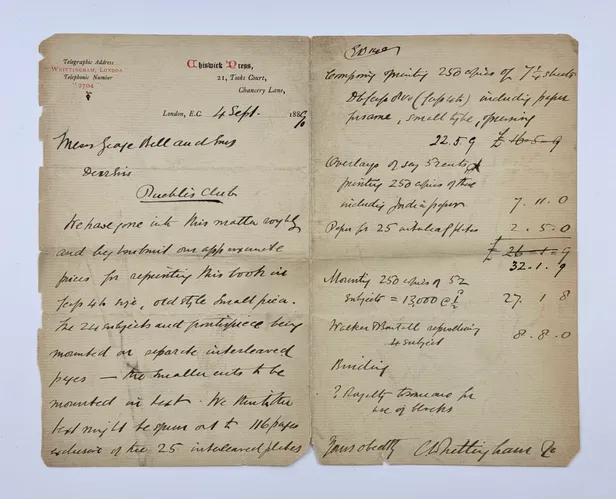 Telegraphic Address
WHITTINGHAM, LONDON
Telephonic Number
2704
Chiswick Press,
21, Tooks Court,
Chancery Lane,
London, E.C. 4 Sept. 188
90
Messrs George Bell and Sons
Dear Sirs
Club
We have gone into this matter roughly
and beg to submit our approximate
prices for reprinting this book in
fcap 4to size, old style small pica.
The 24 subjects and frontispiece being
mounted on separate interleaved
pages — the smaller cuts to be
mounted in text. We think the
text might be spun out to 116 pages
exclusive of the 25 interleaved plates
Composing printing 250 copies of 7 1/4 sheets
Db fcap 8vo (fcap 4to) including paper
for same, small type, pressing
22. 5. 9 £ 16 - 5 - 9
Overlays of say 52 cuts &
printing 250 copies of these
including India paper 7. 11. 0
Paper for 25 interleaf plates 2. 5. 0
£ 26 - 1 - 9
32. 1. 9
Mounting 250 copies of 52
subjects = 13,000 @ 27. 1 8
Walker & Boutall reproducing
4 subject 8. 8. 0
Binding
? Royalty to same for
use of blocks
Yours obedtly C Whittingham & Co